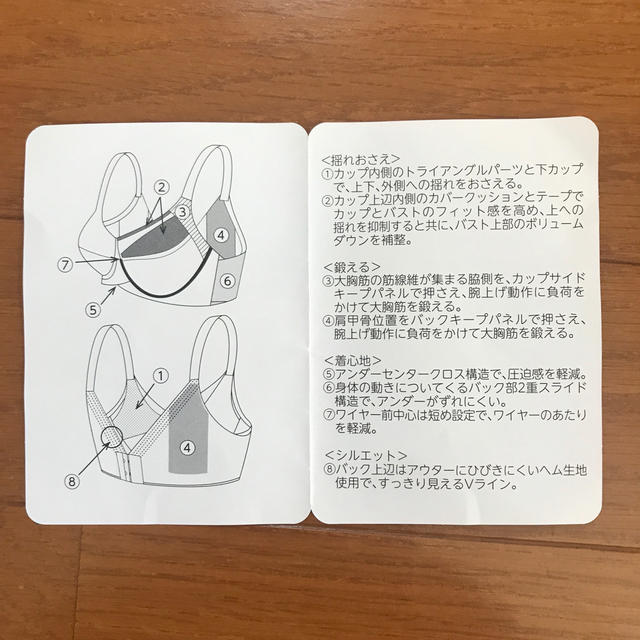 ②
③
④
⑦
⑥
⑤
①
④
⑧
<揺れおさえ>
①カップ内側のトライアングルパーツと下カップ
で、上下、外側への揺れをおさえる。
②カップ上辺内側のカバークッションとテープで
カップとバストのフィット感を高め、上への
揺れを抑制すると共に、バスト上部のボリューム
ダウンを補整。
<鍛える>
③大胸筋の筋線維が集まる脇側を、カップサイド
キープパネルで押さえ、腕上げ動作に負荷を
かけて大胸筋を鍛える。
④肩甲骨位置をバックキープパネルで押さえ、
腕上げ動作に負荷をかけて大胸筋を鍛える。
<着心地>
⑤アンダーセンタークロス構造で、圧迫感を軽減。
⑥身体の動きについてくるバック部2重スライド
構造で、アンダーがずれにくい。
⑦ワイヤー前中心は短め設定で、ワイヤーのあたり
を軽減。
<シルエット>
⑧バック上辺はアウターにひびきにくいヘム生地
使用で、すっきり見えるVライン。